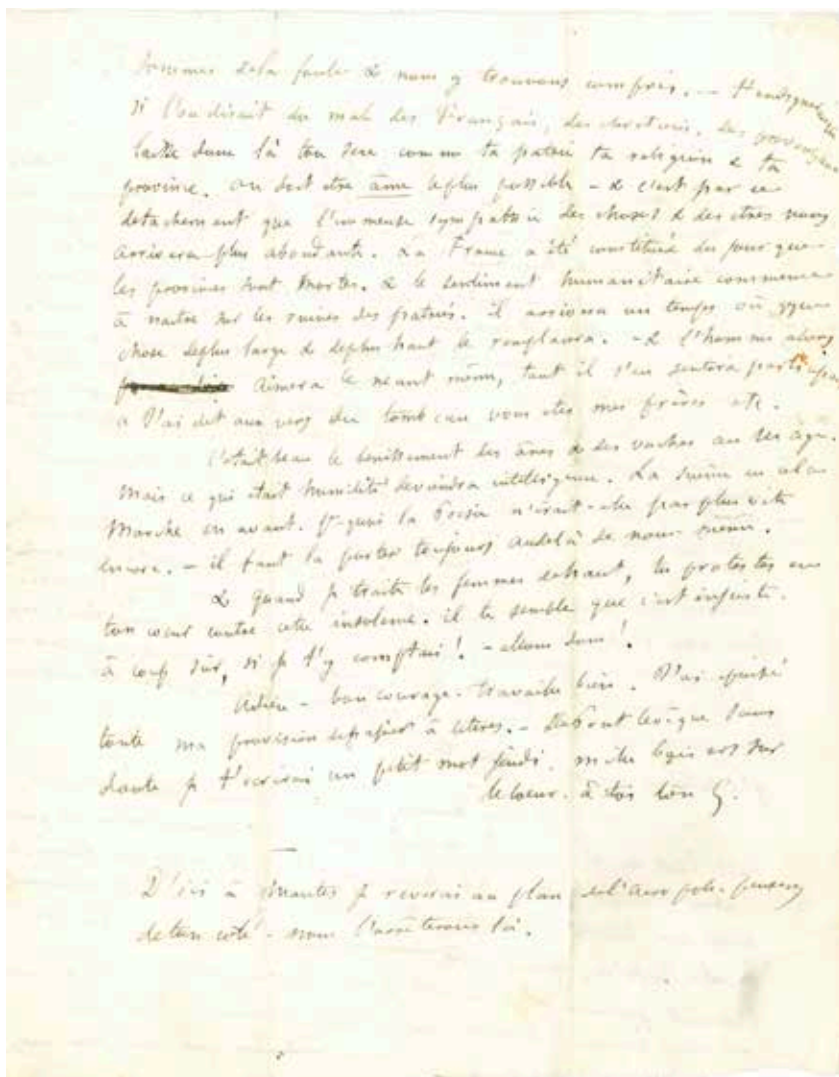 sommes de la foule & nous y trouvons compris. – t'indignerais-tu
si l'on disait du mal des Français, des chrétiens, des provençaux
laisse donc là ton sexe comme ta patrie ta religion & ta
province. on doit etre âme le plus possible – & c'est par ce
detachement que l'immense sympathie des choses & des etres nous
arrivera plus abondante. La France a été constituée du jour que
les provinces sont mortes. & le sentiment humanitaire commence
à naitre sur les ruines des patries. il arrivera un temps où qque
chose de plus large & de plus haut le remplacera. – & l'homme alors
aimera le néant même, tant il s'en sentira participant
J'ai dit aux vers du tombeau vous etes mes frères etc.
C'était beau le benissement des ânes & des vaches au
mais ce qui était humilité deviendra intelligence. La science en cela
marche en avant. pr-quoi la Poésie n'irait-elle pas plus vite
encore. – il faut la porter toujours au delà de nous-même.
& quand je traite les femmes de haut, tu protestes en
ton coeur contre cette insolence. il te semble que c'est injuste.
à coup sûr, si je t'y comptais ! – allons donc !
Adieu – bon courage – travaille bien. J'ai épuisé
toute ma provision de papier à lettres. – De Pont Leveque sans
doute je t'ecrirai un petit mot jeudi. mille baisers sur
le coeur. à toi ton G.
D'ici à Mantes je reverrai au plan de l'acropole. penses y
de ton coté – nous l'arreterons là.